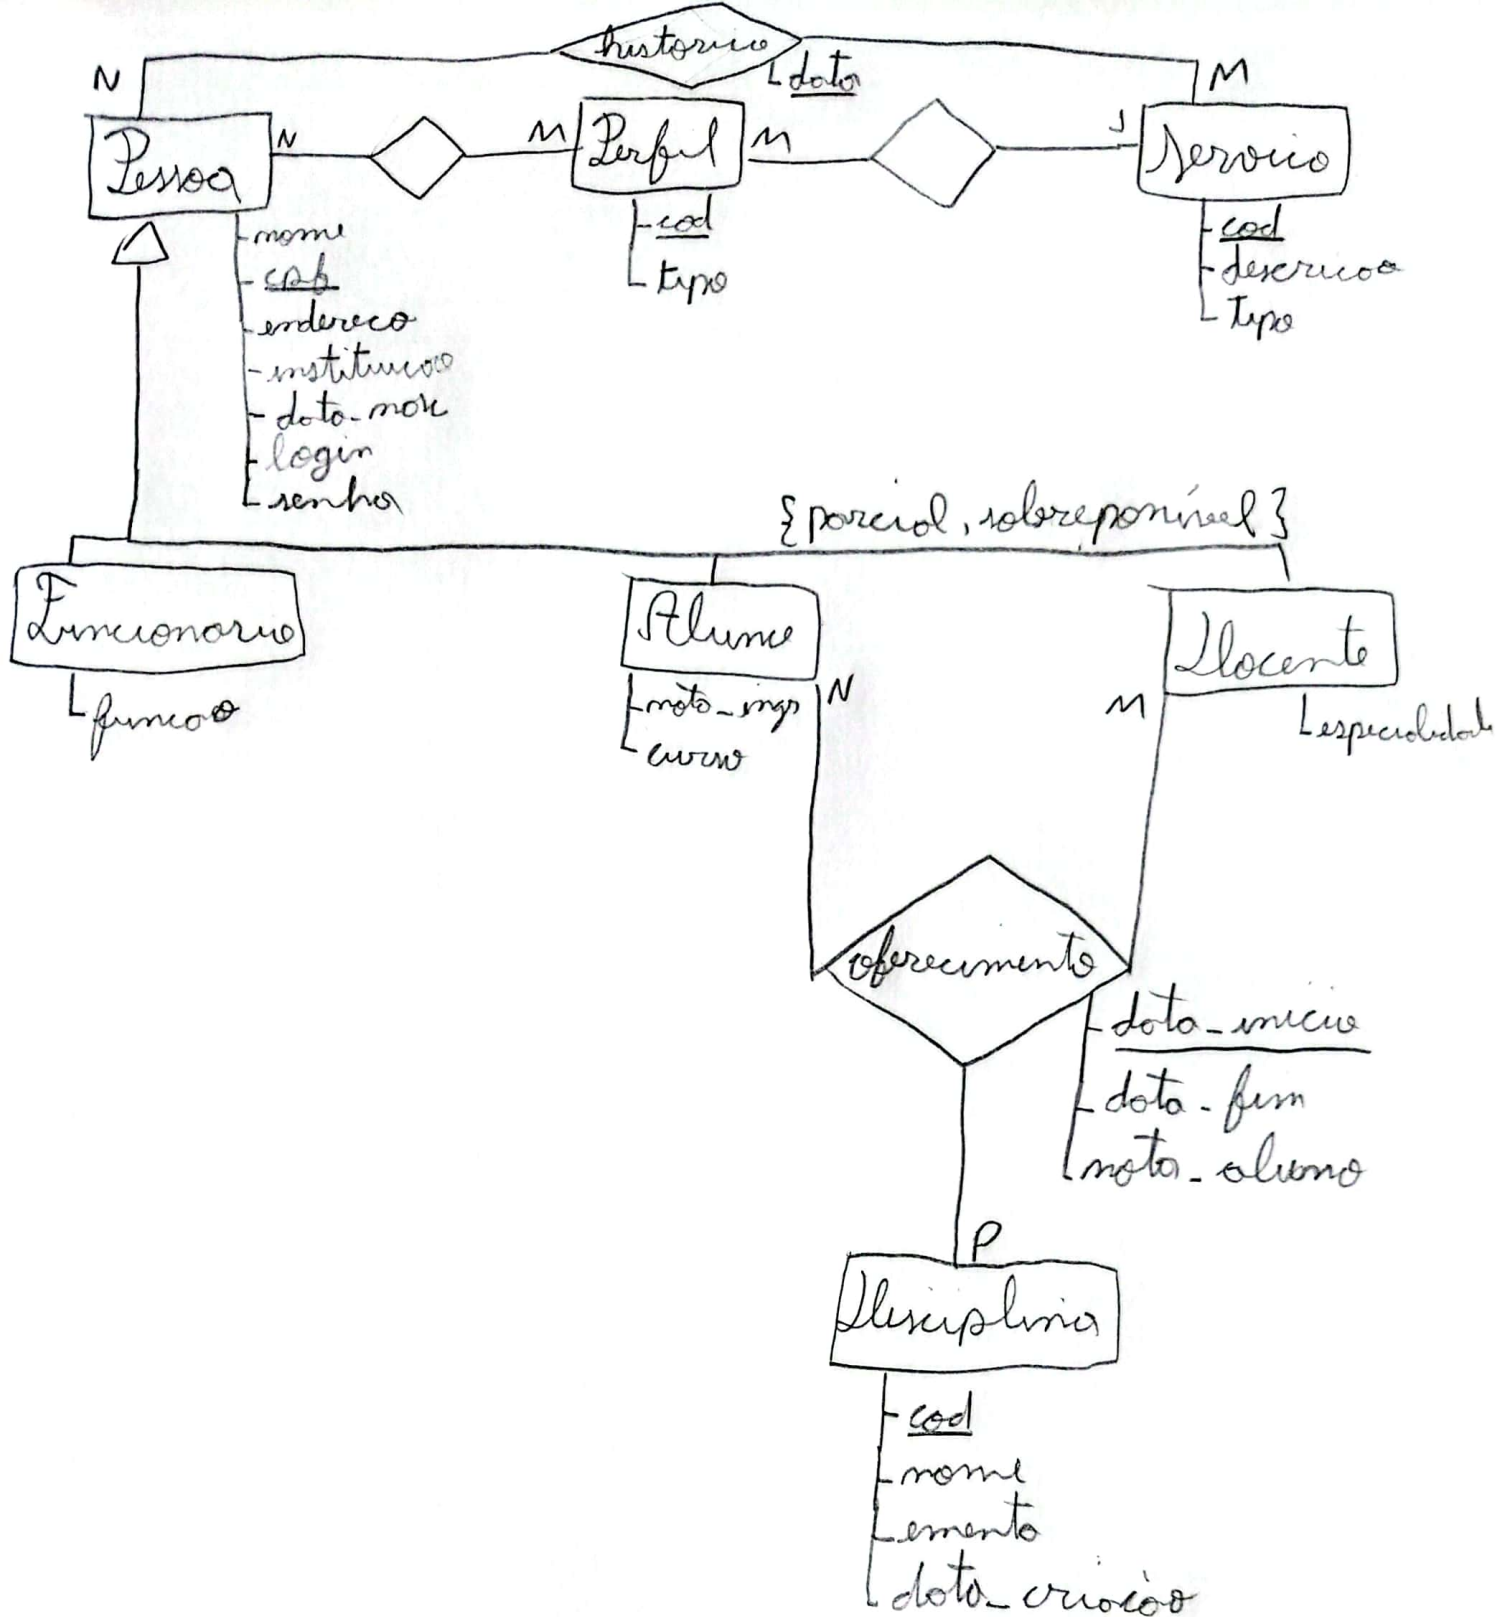 historico
data
N
M
Pessoa
N
M
Perfil
M
1
Servico
nome
cpf
endereco
instituicao
data_nasc
login
senha
cod
tipo
cod
descricao
tipo
{parcial, sobreponível}
Funcionario
Aluno
Docente
funcao
nota_ingr
curso
N
M
especialidade
oferecimento
data_inicio
data_fim
nota_aluno
P
Disciplina
cod
nome
ementa
data_criação